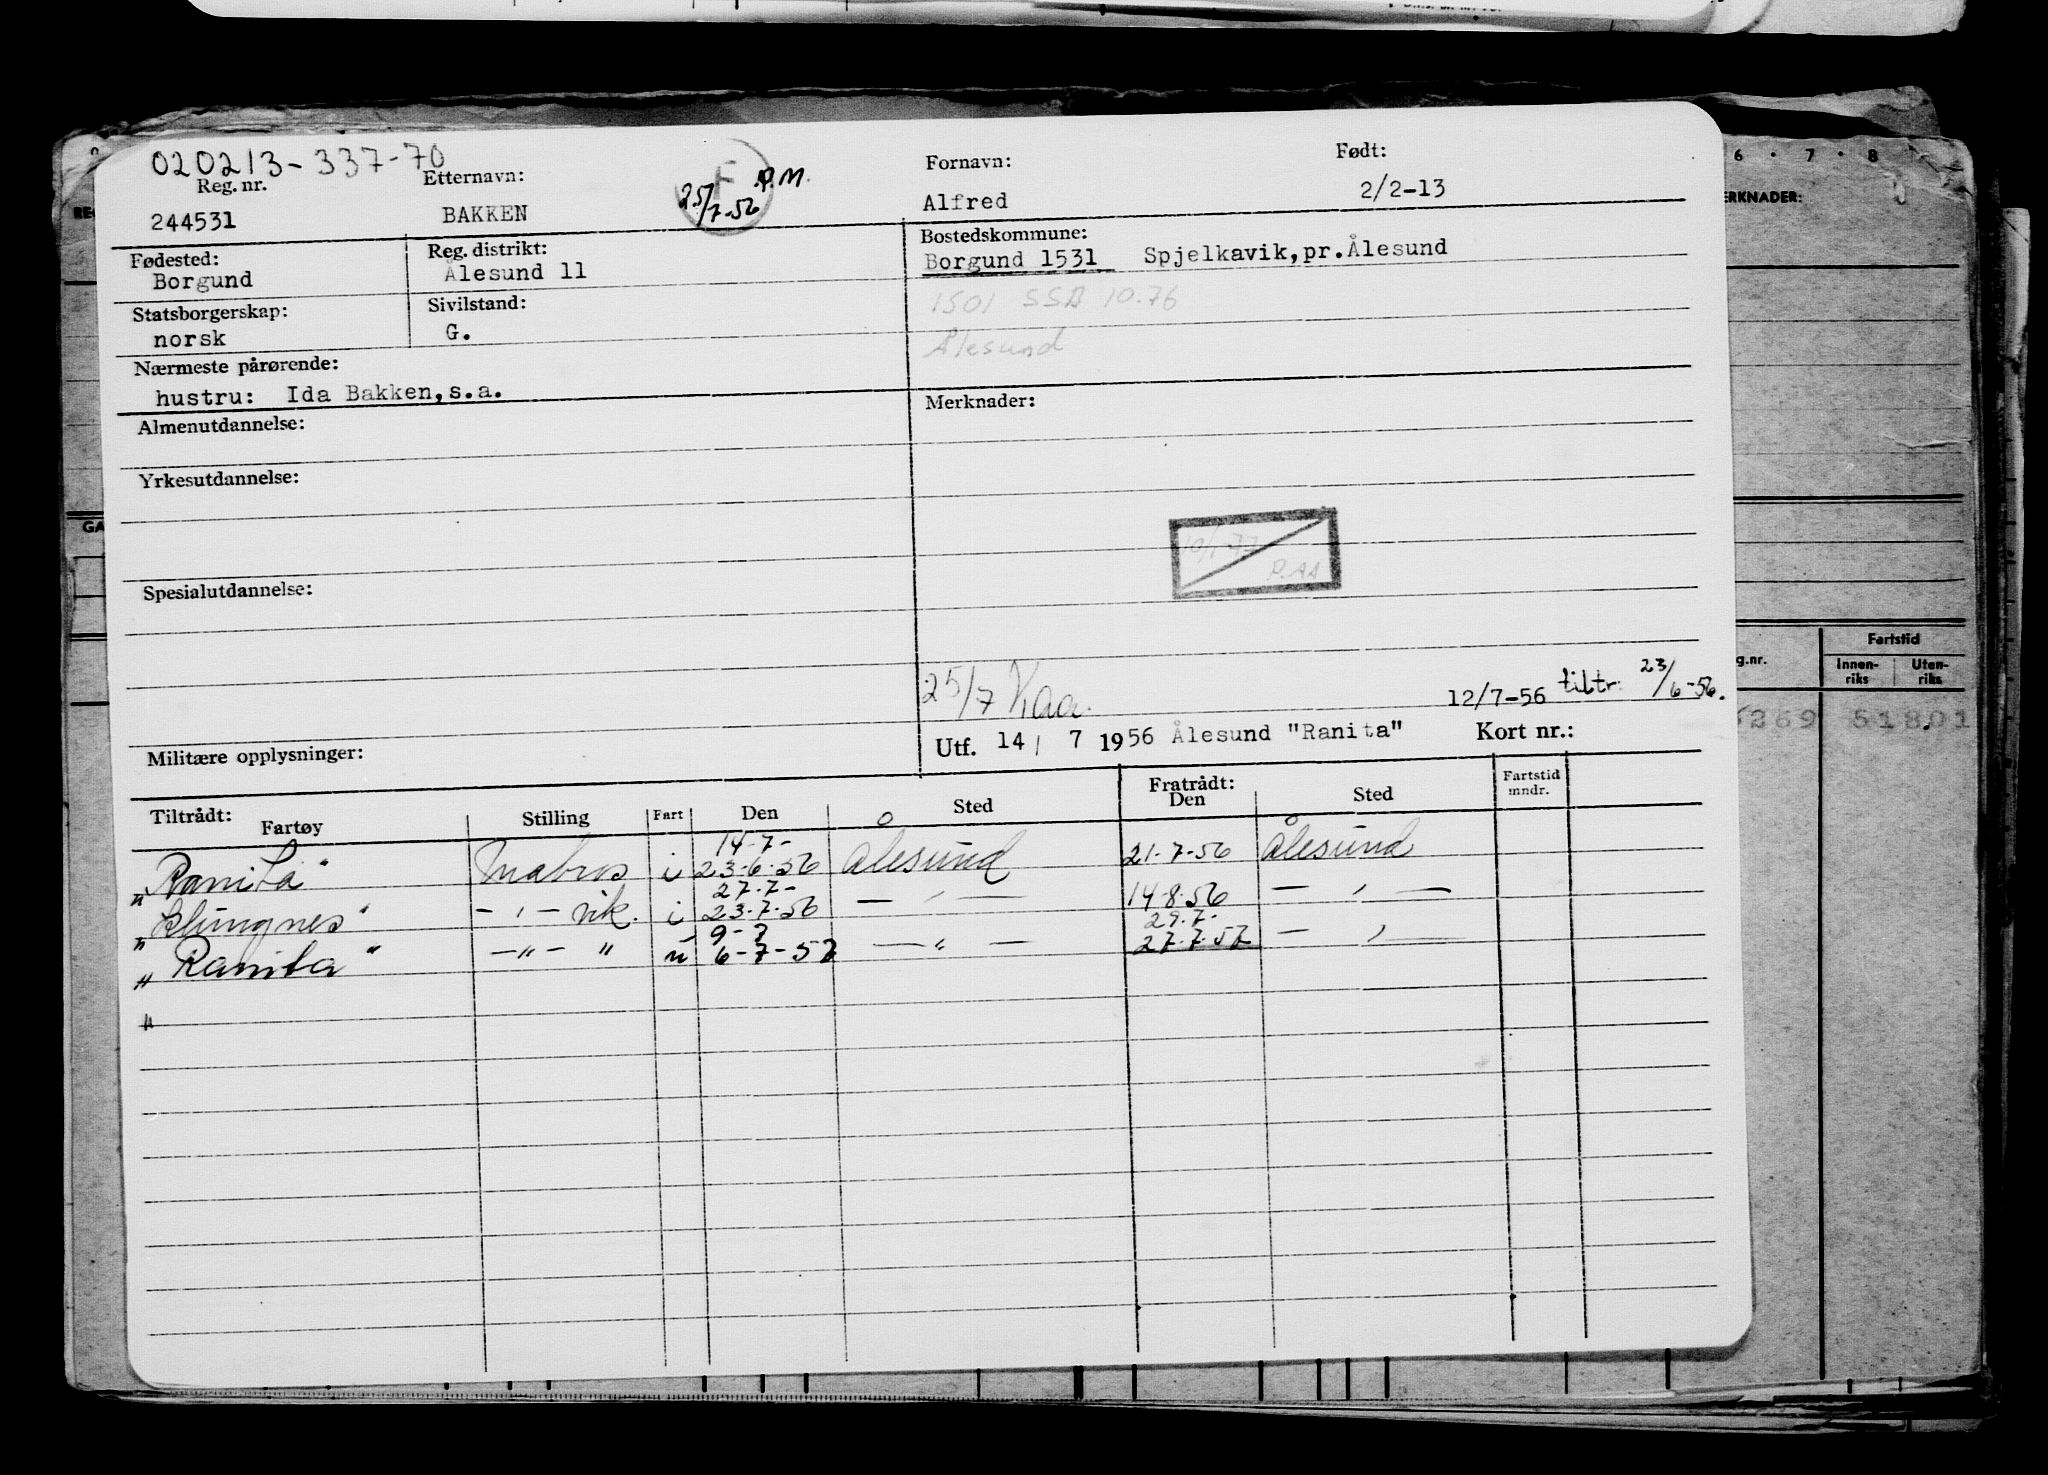 020213-337-70
Reg. nr. Etternavn: Fornavn: Født:
244531 BAKKEN 25/7-56 P.M. Alfred 2/2-13
Fødested: Reg. distrikt: Bostedskommune:
Borgund Ålesund 11 Borgund 1531 Spjelkavik,pr.Ålesund
Statsborgerskap: Sivilstand: 1501 SSA 10.76
norsk G. Ålesund
Nærmeste pårørende:
hustru: Ida Bakken,s.a.
Almenutdannelse: Merknader:
Yrkesutdannelse:
10/1-77
P.AA
Spesialutdannelse:
25/7 Kaa. 12/7-56 tiltr. 23/6-56.
Militære opplysninger: Utf. 14 / 7 1956 Ålesund "Ranita" Kort nr.:
Tiltrådt: Fratrådt: Fartstid mndr.
Fartøy Stilling Fart Den Sted Den Sted
14-7-
"Ranita" Matros i 23-6-56 Ålesund 21-7-56 Ålesund
27.7-
"Blingnes" - " - vik. i 23.7.56 — " — 14-8-56 — " —
9-7 29.7-
"Ranita" -"- " u 6-7-57 —"— 27.7.57 — " —
"
6 · 7 · 8
ERKNADER:
g.nr. Fartstid
Innen-riks Uten-riks
6269 51801